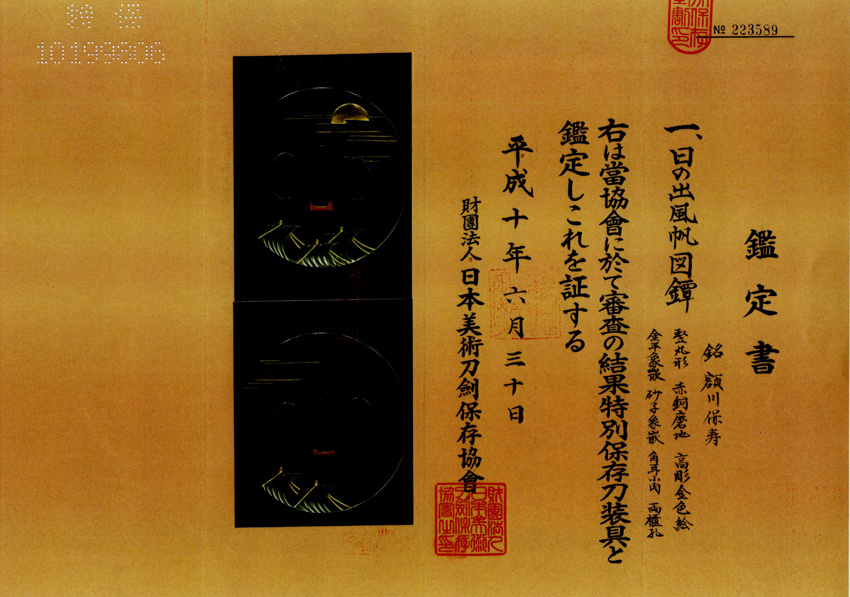 特保
10199806
№ 223589
鑑定書
銘 額川保寿
一、日の出風帆図鐔
竪丸形 赤銅磨地 高彫金色絵
金平象嵌 砂子象嵌 角耳小肉 両櫃孔
右は當協會に於て審査の結果特別保存刀装具と
鑑定しこれを証する
平成十年六月三十日
財團法人日本美術刀劍保存協會
財團法人日本美術刀劍保存協會之印